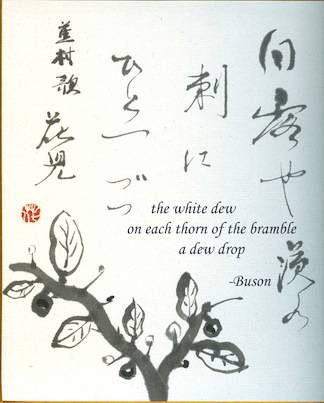 白露や 茨の
刺に
ひとつづつ
蕪村
the white dew
on each thorn of the bramble
a dew drop
-Buson